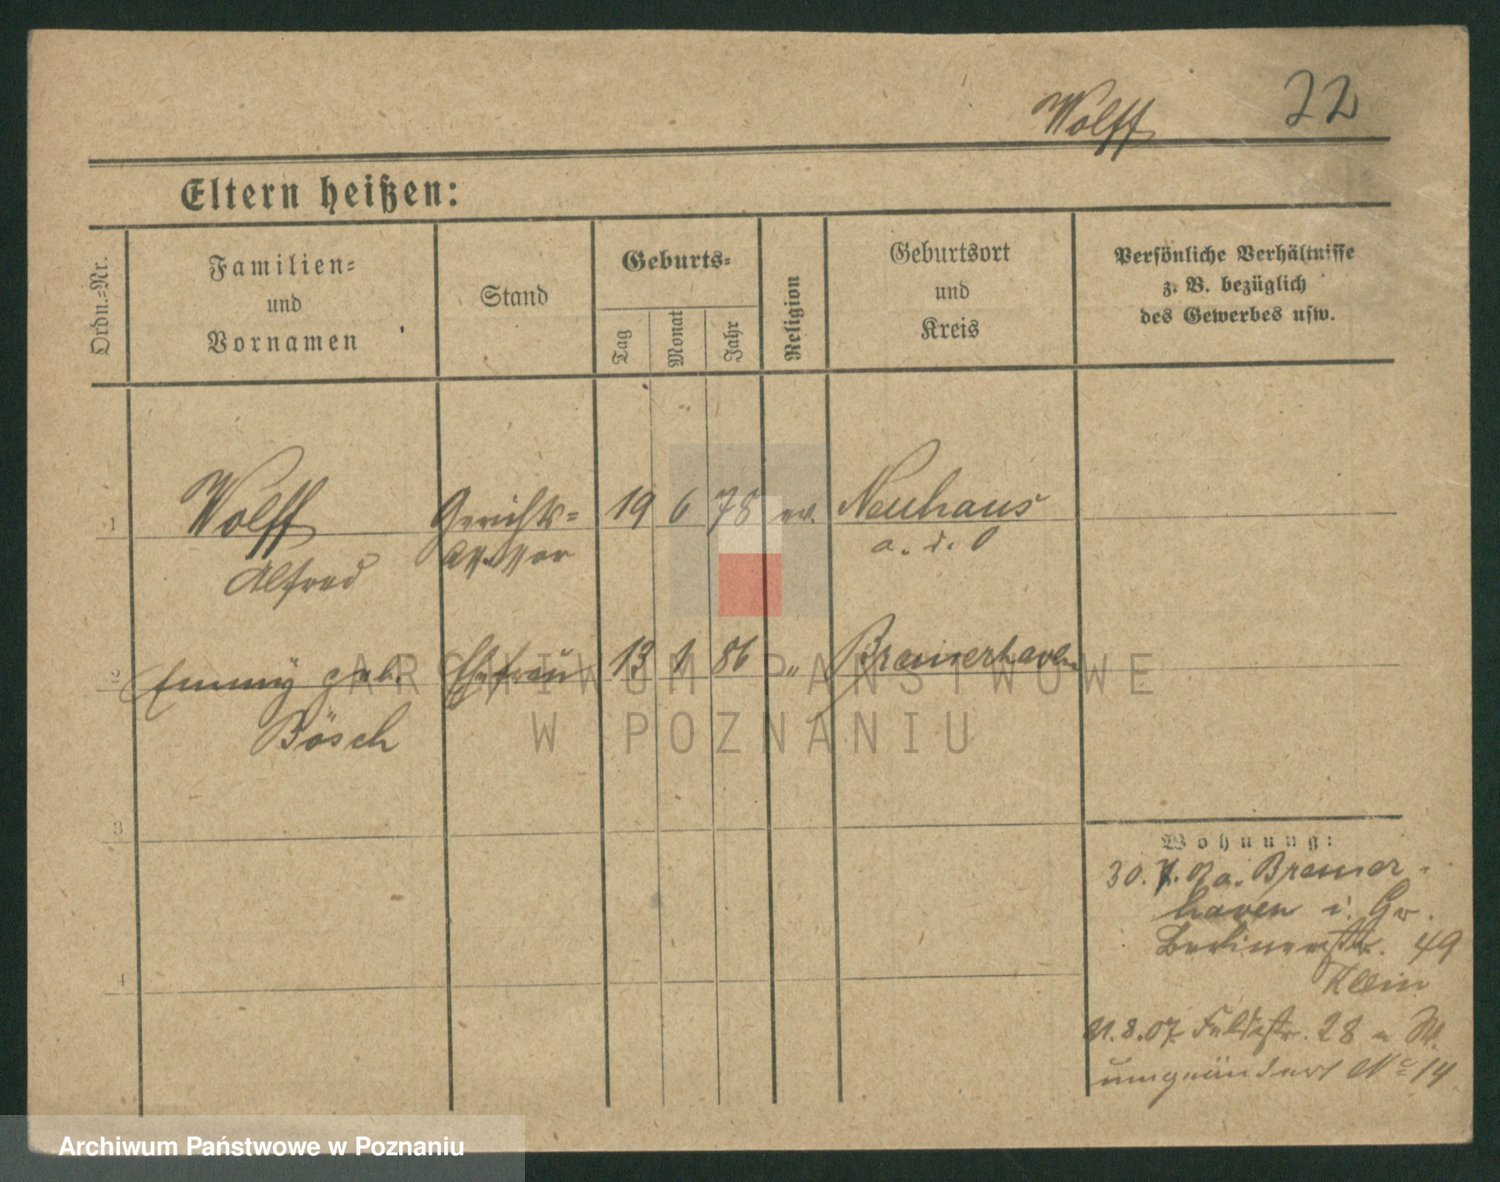 Wolff 22
Eltern heißen:
Ordn.=Nr.
Familien=
und
Vornamen
Stand
Geburts=
Tag
Monat
Jahr
Religion
Geburtsort
und
Kreis
Persönliche Verhältnisse
z. B. bezüglich
des Gewerbes usw.
1 Wolff Gerichts= 19 6 78 ev. Neuhaus
Alfred Assessor a. d. O
2 Emmy geb. Ehefrau 13 1 86 „ Bremerhaven
Bösch
3
4
Wohnung:
30. 7. 07 a. Bremer-
haven i. Gr.
Berlinerstr. 49
Klein
21.8.07 Feldstr. 28 W.
umgeändert No 14
ARCHIWUM PAŃSTWOWE
W POZNANIU
Archiwum Państwowe w Poznaniu